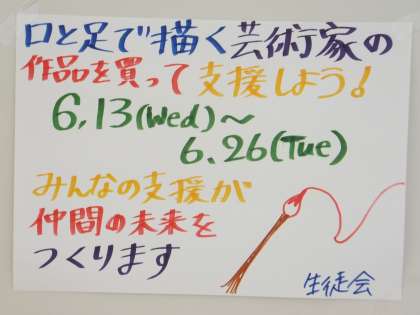 口と足で描く芸術家の
作品を買って支援しよう!
6.13(Wed)～
6.26(Tue)
みんなの支援が
仲間の未来を
つくります
生徒会